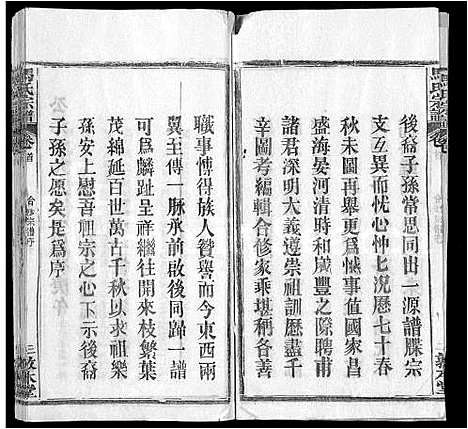 後裔子孫常思同出一源譜牒宗
支互異而忧心忡七況歷七十春
秋未圖再舉更爲憾事值國家昌
盛海晏河清時和歲豐之際聘甫
諸君深明大義遵崇祖訓歷盡千
辛圖考編輯合修家乘堪稱善
職事博得族人贊譽而今東西兩
翼王傳一脈承前啟後同歸一譜
可爲麟趾呈祥繼往開來枝繁葉
茂綿延百世萬古千秋以報祖樂
孫安上慰吾祖宗之心下示後裔
子孫之愿矣是爲序
馬氏宗譜
卷首
三
敦本堂